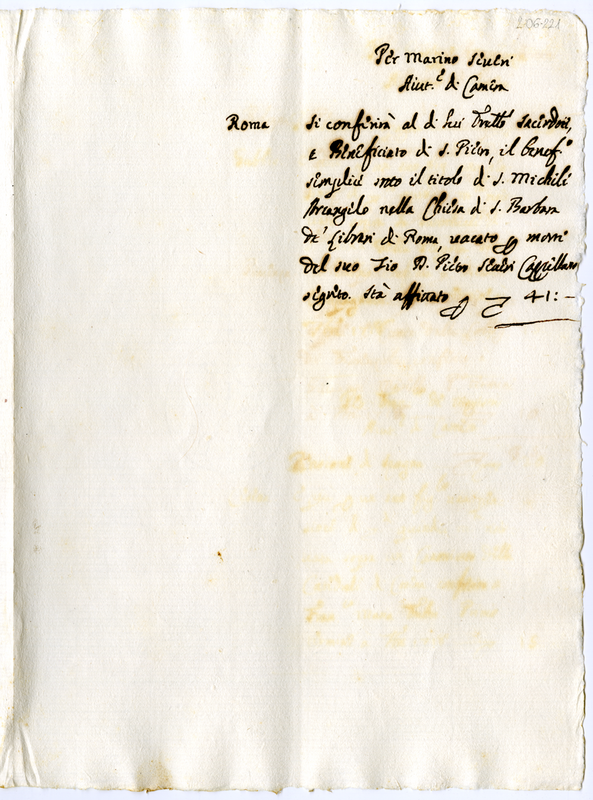 2-OG-221
Per Marino Seueri
Aiut.e di Camera
Roma si conferirà al di lui Fratello sacerdote,
e Beneficiato di S. Pietro, il benef.o
semplice sotto il titolo di S. Michele
Arcangelo nella Chiesa di S. Barbara
de' Librari di Roma, uacato per morte
del suo Zio D. Pietro Seueri Cappellano
segreto. Stà affittato 41:-